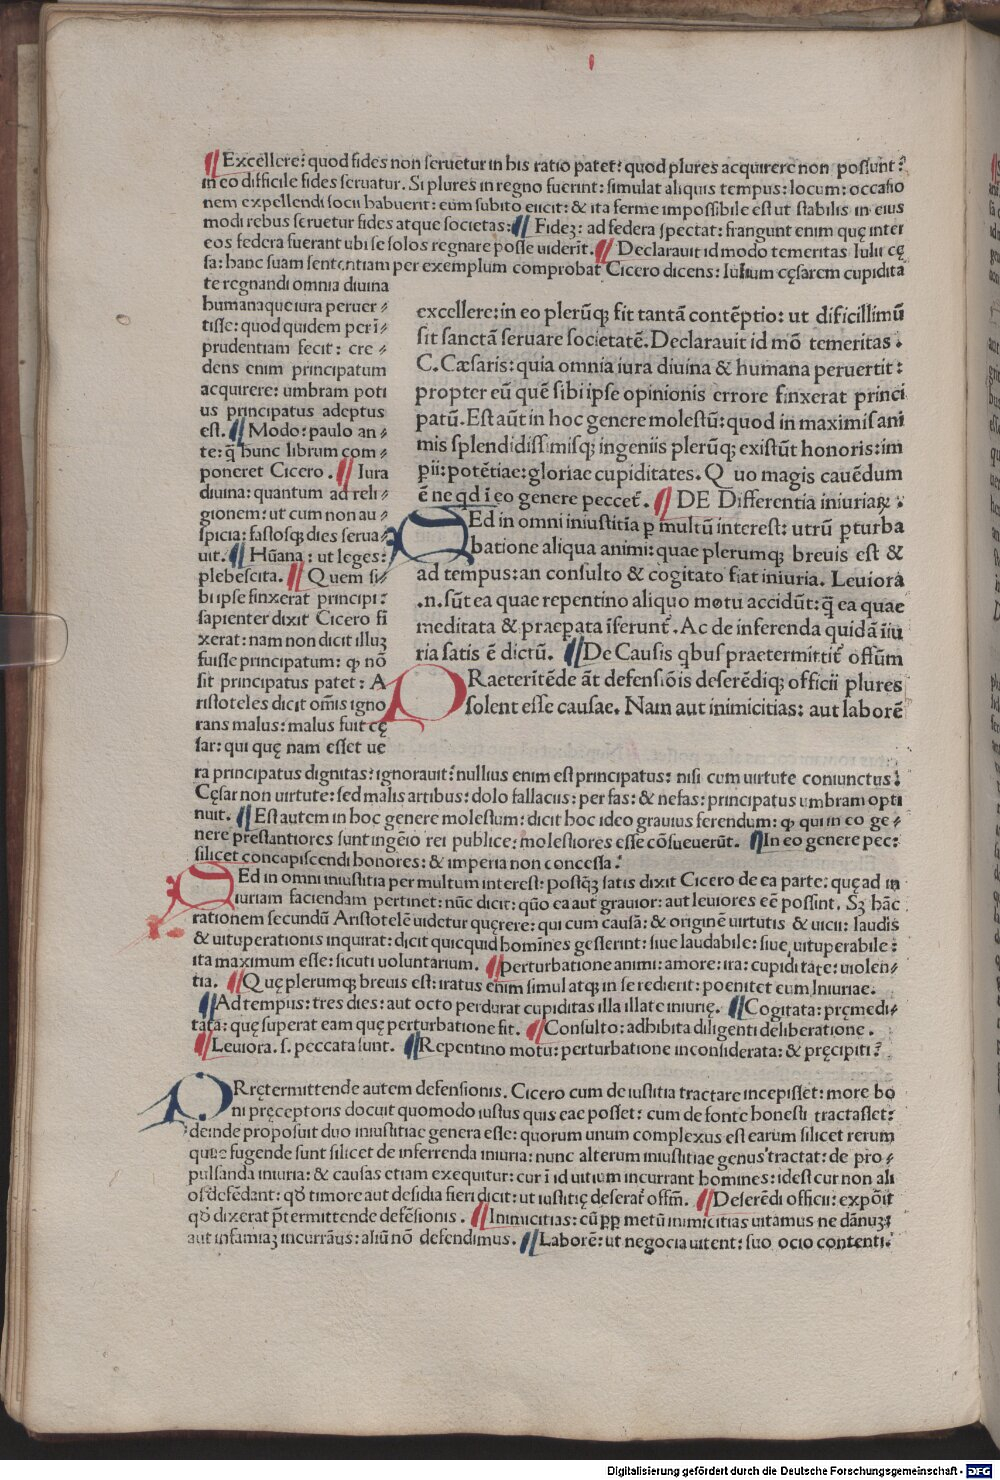 ¶Excellere: quod fides non seruetur in his ratio patet: quod plures acquirere non possunt:
in eo difficile fides seruatur. Si plures in regno fuerint: simulat aliquis tempus: locum: occasio
nem expellendi socii habuerit: eum subito eiicit: & ita ferme impossibile est ut stabilis in eius
modi rebus seruetur fides atque societas: ¶Fideʒ: ad federa spectat: frangunt enim quę inter
eos federa fuerant ubi se solos regnare posse uiderīt. ¶Declarauit id modo temeritas Iulii cę
sa: hanc suam sententiam per exemplum comprobat Cicero dicens: Iulium cęsarem cupidita
te regnandi omnia diuina
humanaque iura peruer⸗
tisse: quod quidem per ī⸗
prudentiam fecit: cre⸗
dens enim principatum
acquirere: umbram poti
us principatus adeptus
est. ¶Modo: paulo an⸗
te: q̄ hunc librum com⸗
poneret Cicero. ¶Iura
diuina: quantum ad reli⸗
gionem: ut cum non au⸗
spicia: fastosqʒ dies serua⸗
uit. ¶Hūana: ut leges:
plebescita. ¶Quem si⸗
bi ipse finxerat principi:
sapienter dixit Cicero fi
xerat: nam non dicit illuʒ
fuisse principatum: ꝙ nō
sit principatus patet: A
ristoteles dicit om̄is igno
rans malus: malus fuit cę
sar: qui quę nam esset ue
ra principatus dignitas: ignorauit: nullius enim est principatus: nisi cum virtute coniunctus:
Cęsar non uirtute: sed malis artibus: dolo fallaciis: per fas: & nefas: principatus umbram opti
nuit. ¶Est autem in hoc genere molestum: dicit hoc ideo grauius ferendum: ꝙ qui in eo ge⸗
nere prestantiores sunt ingēio rei publice: molestiores esse cōsueuerūt. ¶In eo genere pec:
silicet concupiscendi honores: & imperia non concessa:
excellere: in eo plerūqʒ fit tantā contēptio: ut dificillimū
sit sanctā seruare societatē. Declarauit id mō temeritas.
C. Cæsaris: quia omnia iura diuina & humana peruertit:
propter eū quē sibi ipse opinionis errore finxerat princi
patū. Est aūt in hoc genere molestū: quod in maximis ani
mis splendidissimisqʒ ingeniis plerūqʒ existūt honoris: im
pii: potētiae: gloriae cupiditates. Quo magis cauēdum
ē ne qd ī eo genere peccet̄. ¶DE Differentia iniuriaꝝ:
SEd in omni iniustitia ꝑ multū interest: utrū ꝑturba
batione aliqua animi: quae plerumqʒ breuis est &
ad tempus: an consulto & cogitato fiat iniuria. Leuiora
.n. sūt ea quae repentino aliquo motu accidūt: q̄ ea quae
meditata & praeꝑata īferunt̄. Ac de inferenda quidā īiu
ria satis ē dictū. ¶De Causis qbus praetermittit̄ offūm
PRaeteritēde āt defensiōis deserēdiqʒ officii plures
solent esse causae. Nam aut inimicitias: aut laborē
SEd in omni iniustitia per multum interest: postqʒ satis dixit Cicero de ea parte: quę ad in
iuriam faciendam pertinet: nūc dicit: quō ea aut grauior: aut leuiores eē possint. Sʒ hāc
rationem secundū Aristotelē uidetur quęrere: qui cum causā: & originē uirtutis & uicii: laudis
& uituperationis inquirat: dicit quicquid homines gesserint: siue laudabile: siue uituperabile:
ita maximum esse: sicuti uoluntarium. ¶perturbatione animi: amore: ira: cupiditate: uiolen⸗
tia. ¶Quę plerumqʒ breuis est: iratus enim simul atqʒ in se redierit: poenitet eum Iniuriae.
¶Ad tempus: tres dies: aut octo perdurat cupiditas illa illate iniurię. ¶Cogitata: pręmedi⸗
tata: quę superat eam quę perturbatione fit. ¶Consulto: adhibita diligenti deliberatione.
¶Leuiora. s. peccata sunt. ¶Repentino motu: perturbatione inconsiderata: & pręcipiti:
PRrętermittende autem defensionis. Cicero cum de iustitia tractare incepisset: more bo
ni pręceptoris docuit quomodo iustus quis eae posset: cum de fonte honesti tractasset:
deinde proposuit duo iniustitiae genera esse: quorum unum complexus est earum silicet rerum
quae fugende sunt silicet de inferrenda iniuria: nunc alterum iniustitiae genus tractat: de pro⸗
pulsanda iniuria: & causas etiam exequitur: cur ī id uitium incurrant homines: idest cur non ali
os defēdant: qď timore aut desidia fieri dicit: ut iustitię deserat̄ offm̄. ¶Deserēdi officii: expōit
qď dixerat p̄termittende defēsionis. ¶Inimicitias: cū ꝑꝑ metū inimicitias uitamus ne dānuʒ:
aut infamiaʒ incurrāus: aliū nō defendimus. ¶Laborē: ut negocia uitent: suo ocio contenti.
Digitalisierung gefördert durch die Deutsche Forschungsgemeinschaft - DFG